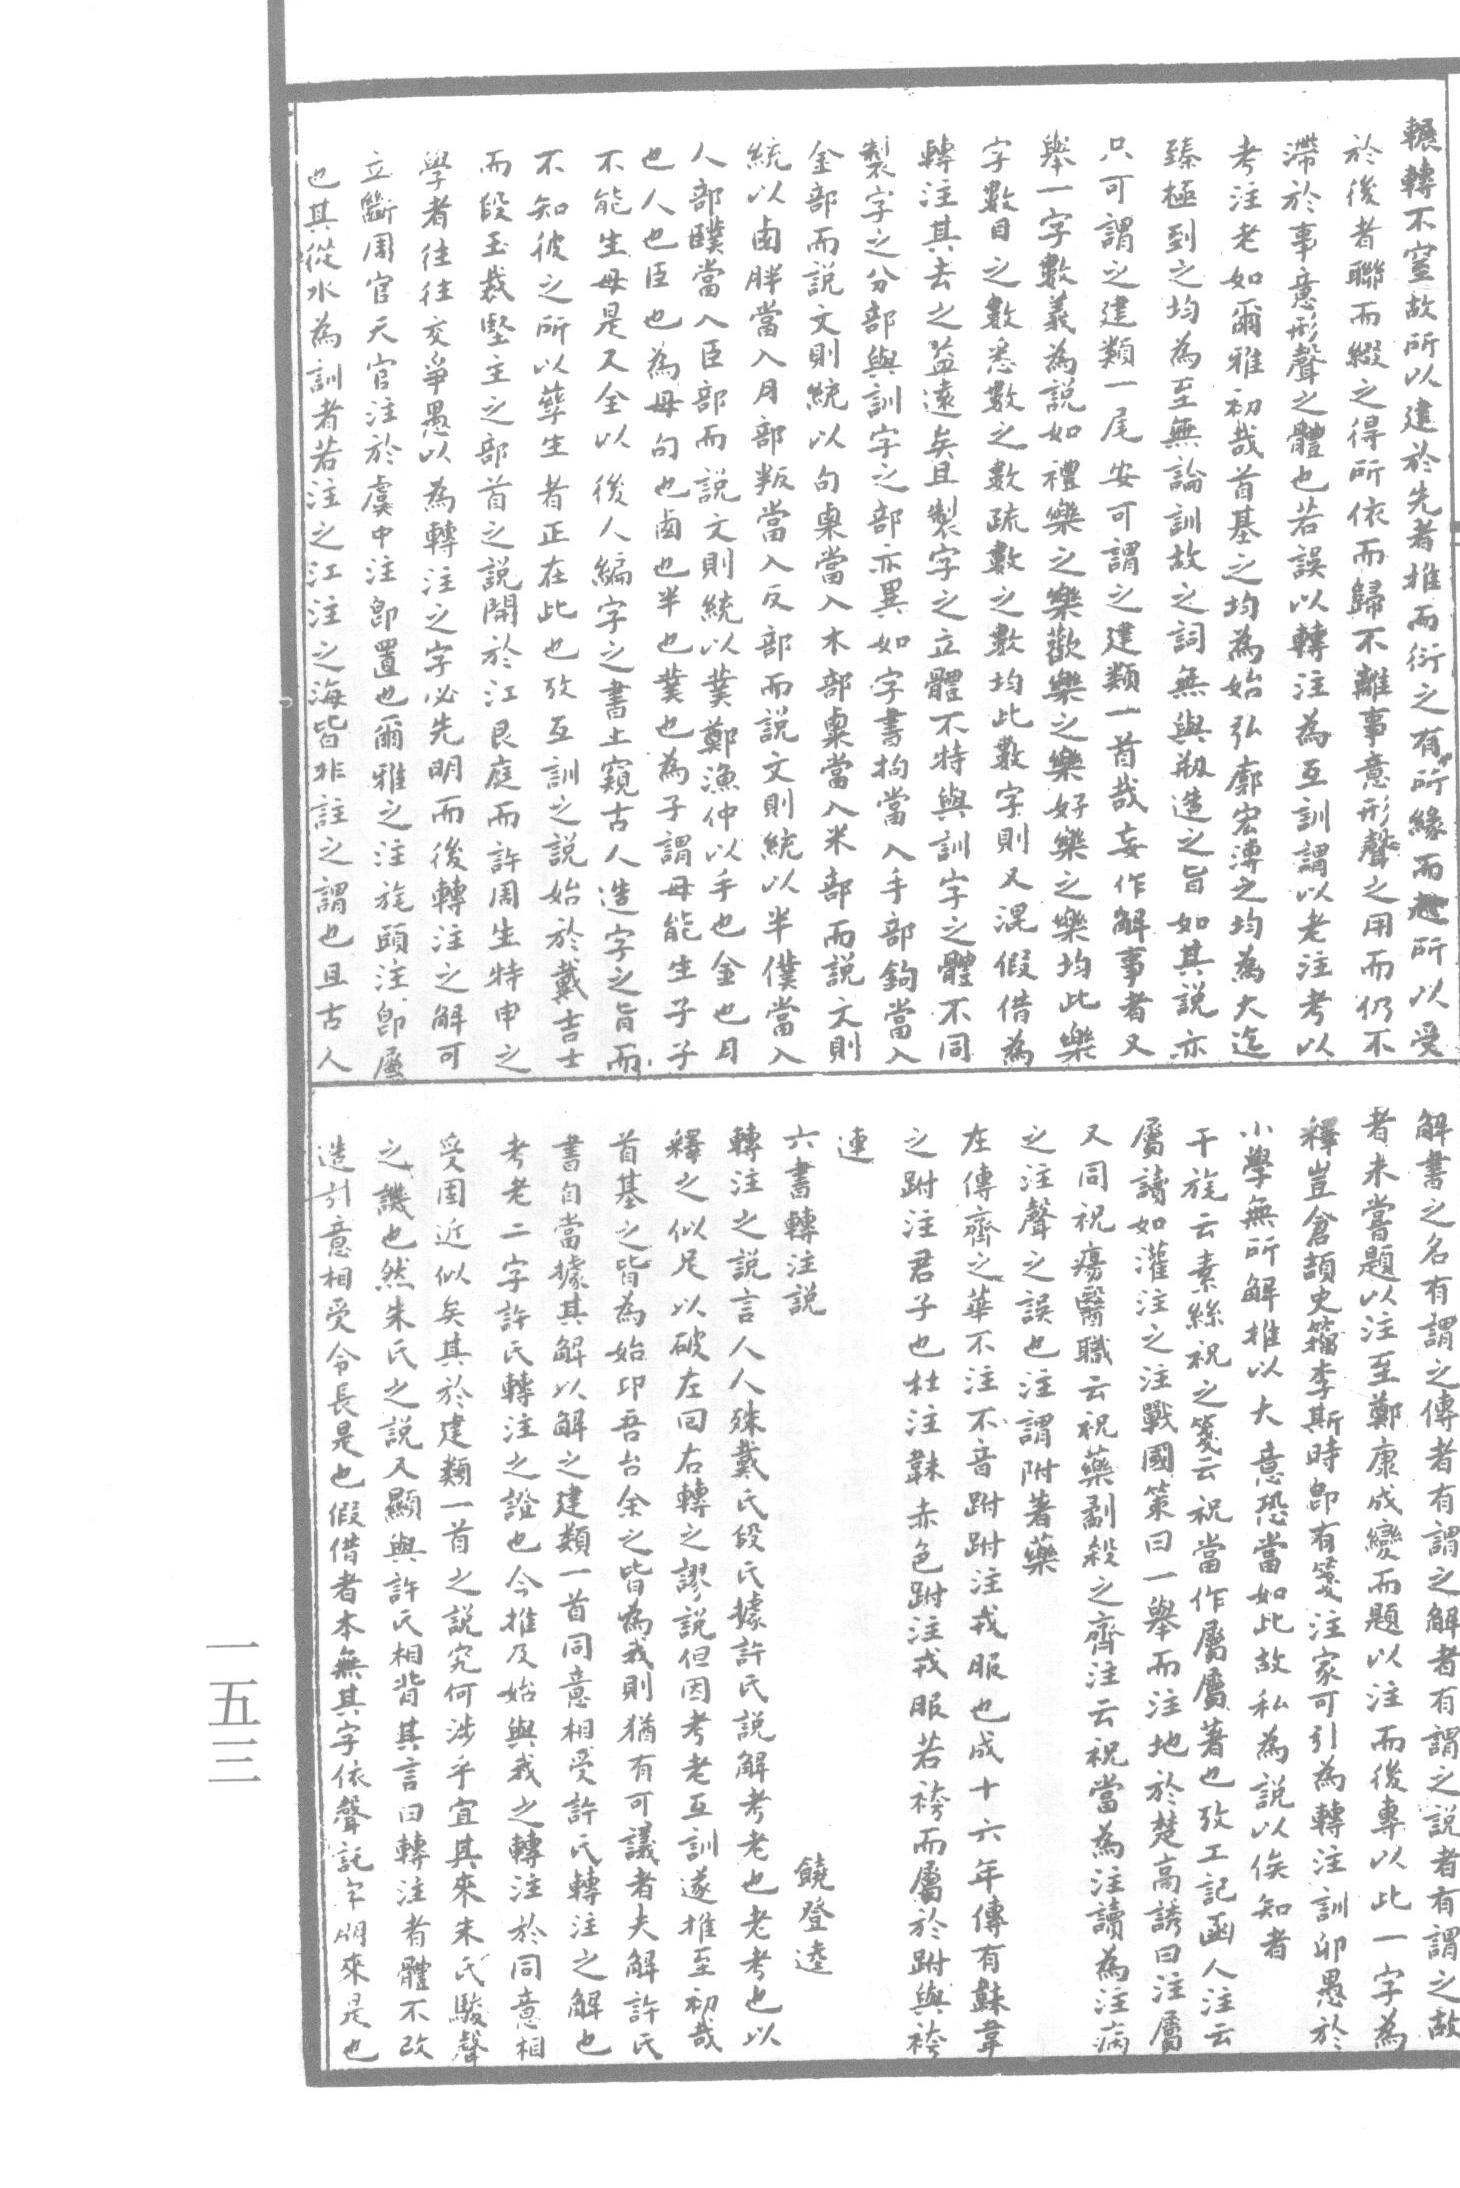 輾轉不窒故所以建於先者推而衍之有所緣而起所以受
於後者聯而綴之得所依而歸不離事意形聲之用而仍不
滯於事意形聲之體也若誤以轉注為互訓謂以老注考以
考注老如爾雅初哉首基之均為始弘廓宏溥之均為大迄
臻極到之均為至無論訓故之詞無與剏造之旨如其說亦
只可謂之建類一尾安可謂之建類一首哉妄作解事者又
舉一字數義為說如禮樂之樂歡樂之樂好樂之樂均此樂
字數目之數悉數之數疏數之數均此數字則又混假借為
轉注其去之益遠矣且製字之立體不特與訓字之體不同
製字之分部與訓字之部亦異如字書拘當入手部鉤當入
金部而說文則統以句㮚當入木部粟當入米部而說文則
統以鹵胖當入月部叛當入反部而說文則統以半僕當入
人部䑑當入臣部而說文則統以菐鄭漁仲以手也金也月
也人也臣也為母句也鹵也半也菐也為子謂母能生子子
不能生母是又全以後人編字之書上窺古人造字之旨而
不知彼之所以孳生者正在此也攷互訓之說始於戴吉士
而段玉裁堅主之部首之說開於江艮庭而許周生特申之
學者往往交爭愚以為轉注之字必先明而後轉注之解可
立斷周官天官注於虞中注卽置也爾雅之注旄頭注卽屬
也其從水為訓者若注之江注之海皆非註之謂也且古人
解書之名有謂之傳者有謂之解者有謂之說者有謂之故
者未嘗題以注至鄭康成變而題以注而後專以此一字為
釋豈倉頡史籀李斯時卽有箋注家可引為轉注訓卯愚於
小學無所解推以大意恐當如此故私為說以俟知者
干旄云素絲祝之箋云祝當作屬屬著也攷工記函人注云
屬讀如灌注之注戰國策曰一舉而注地於楚高誘曰注屬
又同祝瘍醫職云祝藥劀殺之齊注云祝當為注讀為注病
之注聲之誤也注謂附著藥
左傳齊之華不注不音跗跗注戎服也成十六年傳有韎韋
之跗注君子也杜注韎赤色跗注戎服若袴而屬於跗與袴
連
六書轉注說 饒登逵
轉注之說言人人殊戴氏段氏據許氏說解考老也老考也以
釋之似足以破左回右轉之謬說但因考老互訓遂推至初哉
首基之皆為始卬吾台余之皆為我則猶有可議者夫解許氏
書自當據其解以解之建類一首同意相受許氏轉注之解也
考老二字許氏轉注之證也今推及始與我之轉注於同意相
受固近似矣其於建類一首之說究何涉乎宜其來朱氏駿聲
之譏也然朱氏之說又顯與許氏相背其言曰轉注者體不改
造引意相受令長是也假借者本無其字依聲託字朋來是也
一五三